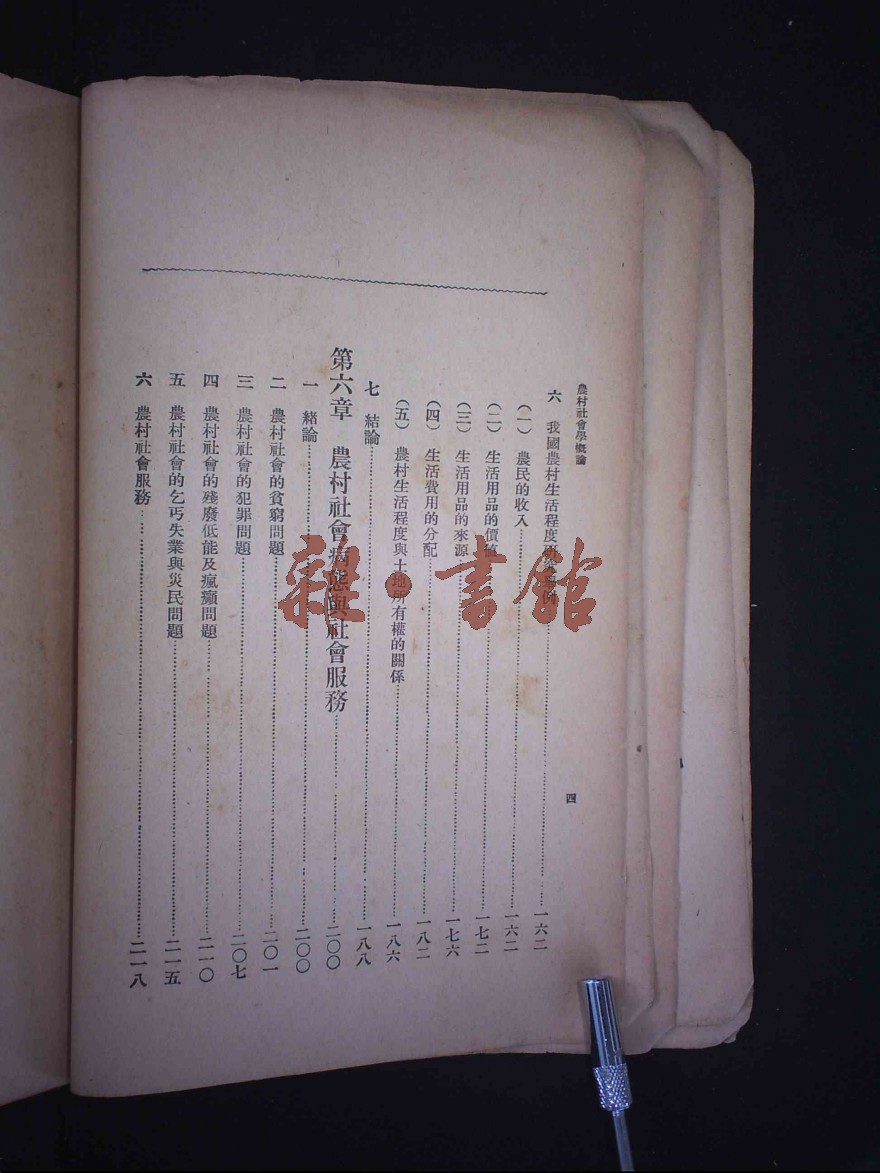 農村社會學概論
四
六 我國農村生活程度研究舉例……一六二
(一) 農民的收入……一六二
(二) 生活用品的價值……一七二
(三) 生活用品的來源……一七六
(四) 生活費用的分配……一八二
(五) 農村生活程度與土地所有權的關係……一八六
七 結論……一八八
第六章 農村社會病態與社會服務……二〇〇
一 緒論……二〇〇
二 農村社會的貧窮問題……二〇一
三 農村社會的犯罪問題……二〇七
四 農村社會的殘廢低能及瘋癲問題……二一〇
五 農村社會的乞丐失業與災民問題……二一五
六 農村社會服務……二一八
雜·書館